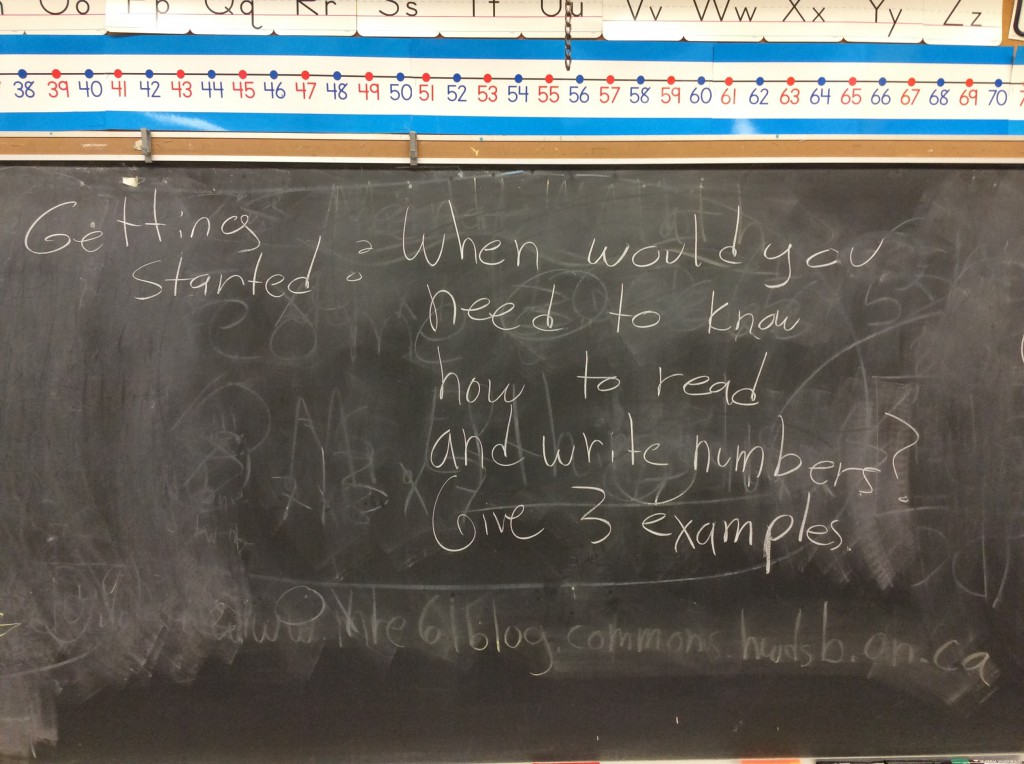 Oo Pp Qq Rr Ss Tt Uu Vv Ww Xx Yy Zz
38 39 40 41 42 43 44 45 46 47 48 49 50 51 52 53 54 55 56 57 58 59 60 61 62 63 64 65 66 67 68 69 70
Getting
started: When would you
need to know
how to read
and write numbers?
Give 3 examples.
blog.commons.hwdsb.on.ca